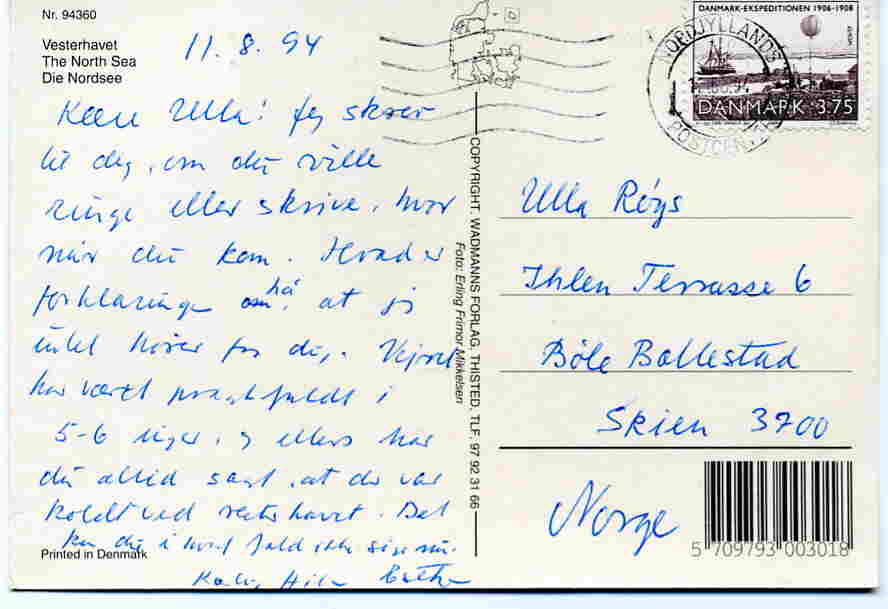 Nr. 94360
Vesterhavet
The North Sea
Die Nordsee
11.8.94
Kære Ulla! Jeg skrev
til dig, om du ville
ringe eller skrive, hvor
når du kom. Hvad er
forklaringen på, at jeg
intet hører fra dig. Vejret
har været pragtfuldt i
5-6 uger, og ellers har
du altid sagt, at der var
koldt ved vesterhavet. Det
kan du i hvert fald ikke sige nu.
Printed in Denmark
COPYRIGHT. WADMANNS FORLAG, THISTED. TLF. 97 92 31 66
Foto: Erling Frimor Mikkelsen
DANMARK-EKSPEDITIONEN 1906-1908
DANMARK 3.75
NORDJYLLANDS
POSTCEN
Ulla Røys
Ihlen Terrasse 6
Bøle Ballestad
Skien 3700
Norge
5 709793 003018